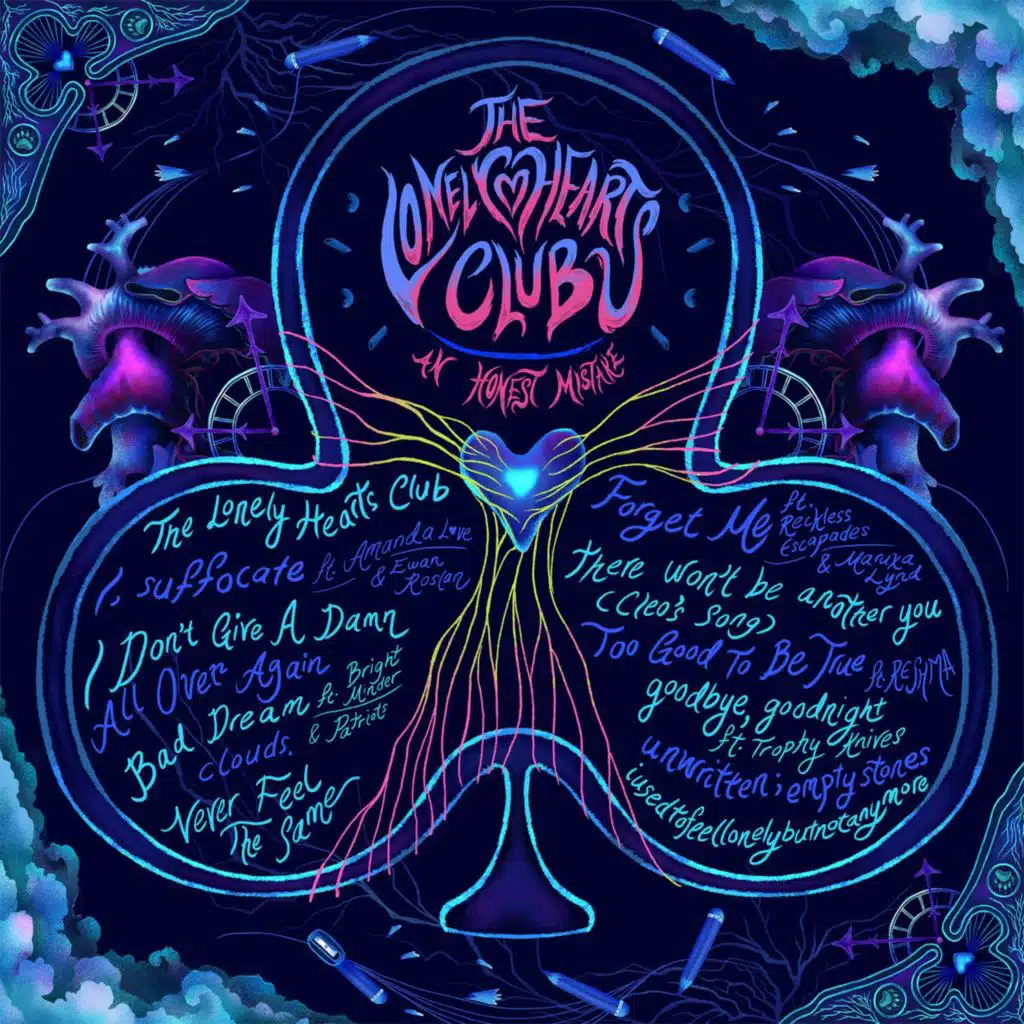 THE
LONELY HEARTS
CLUB
AN HONEST MISTAKE
The Lonely Hearts Club
I, suffocate ft. Amanda Love
& Ewan
Roslan
I Don't Give A Damn
All Over Again
Bad Dream ft. Bright
Minder
& Patriots
clouds.
Never Feel
The Same
Forget Me ft.
Reckless
Escapades
& Marixa
Lynd
There won't be another you
(Cleo's Song)
Too Good To Be True ft. RESHMA
goodbye, goodnight
ft. Trophy Knives
unwritten; empty stones
iusedtofeellonelybutnotanymore